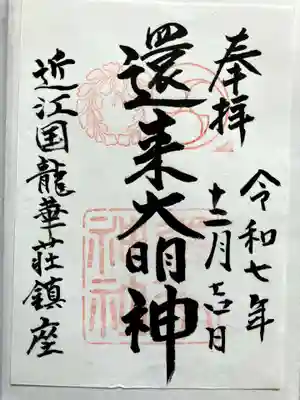 奉拝
令和七年
十二月古日
還来大明神
近江国龍華荘鎮座